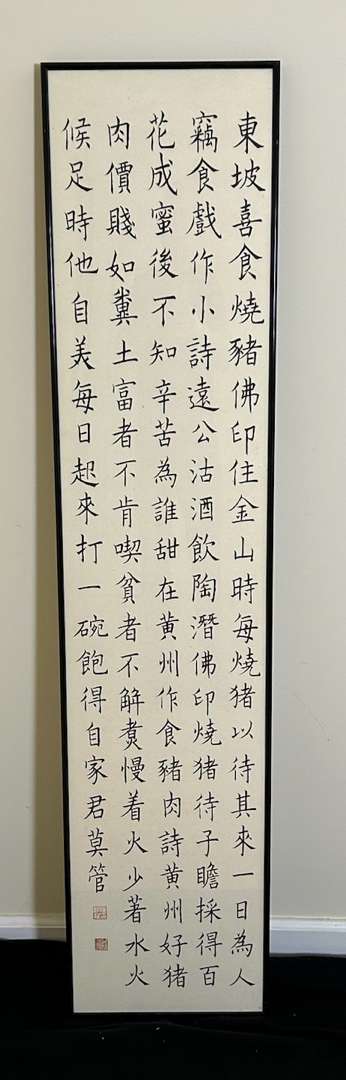 東坡喜食燒豬佛印住金山時每燒猪以待其來一日為人
竊食戲作小詩遠公沽酒飲陶潛佛印燒猪待子瞻採得百
花成蜜後不知辛苦為誰甜在黄州作食豬肉詩黄州好猪
肉價賤如糞土富者不肯喫貧者不解煮慢着火少著水火
候足時他自美每日起來打一碗飽得自家君莫管